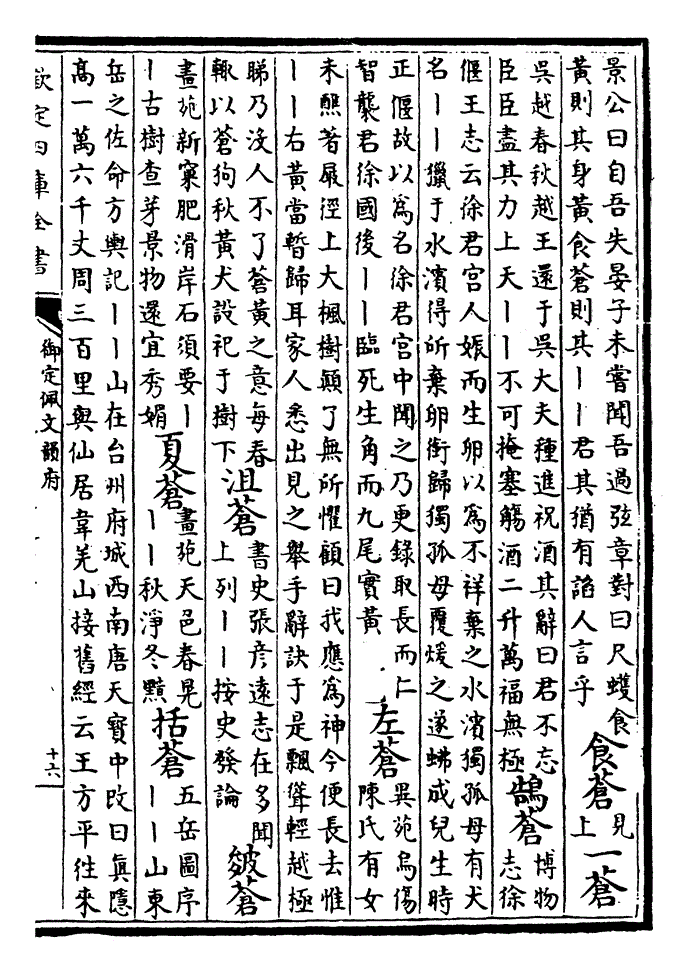 景公曰自吾失晏子未嘗聞吾過弦章對曰尺蠖食
黃則其身黃食蒼則其丨丨君其猶有諂人言乎
食蒼
見
上
一蒼
吳越春秋越王還于吳大夫種進祝酒其辭曰君不忘
臣臣盡其力上天丨丨不可掩塞觴酒二升萬福無極
鵠蒼
博物
志徐
偃王志云徐君宮人娠而生卵以為不祥棄之水濱獨孤母有犬
名丨丨獵于水濱得所棄卵銜歸獨孤母覆煖之遂成兒生時
正偃故以為名徐君宮中聞之乃更錄取長而仁
智襲君徐國後丨丨臨死生角而九尾實黃
左蒼
異苑烏傷
陳氏有女
未醮著屐徑上大楓樹顛了無所懼顧曰我應為神今便長去惟
丨丨右黃當暫歸耳家人悉出見之舉手辭訣于是飄聳輕越極
睇乃沒人不了蒼黃之意每春
輒以蒼狗秋黃犬設祀于樹下
沮蒼
書史張彥遠志在多聞
上列丨丨按史發論
皴蒼
畫苑新窠肥滑岸石須要丨
丨古樹查芽景物還宜秀媚
夏蒼
畫苑天色春晃
丨丨秋淨冬黯
括蒼
五岳圖序
丨丨山東
岳之佐命方輿記丨丨山在台州府城西南唐天寶中改曰真隱
高一萬六千丈周三百里與仙居韋羌山接舊經云王方平往來
欽定四庫全書
御定佩文韻府
十六